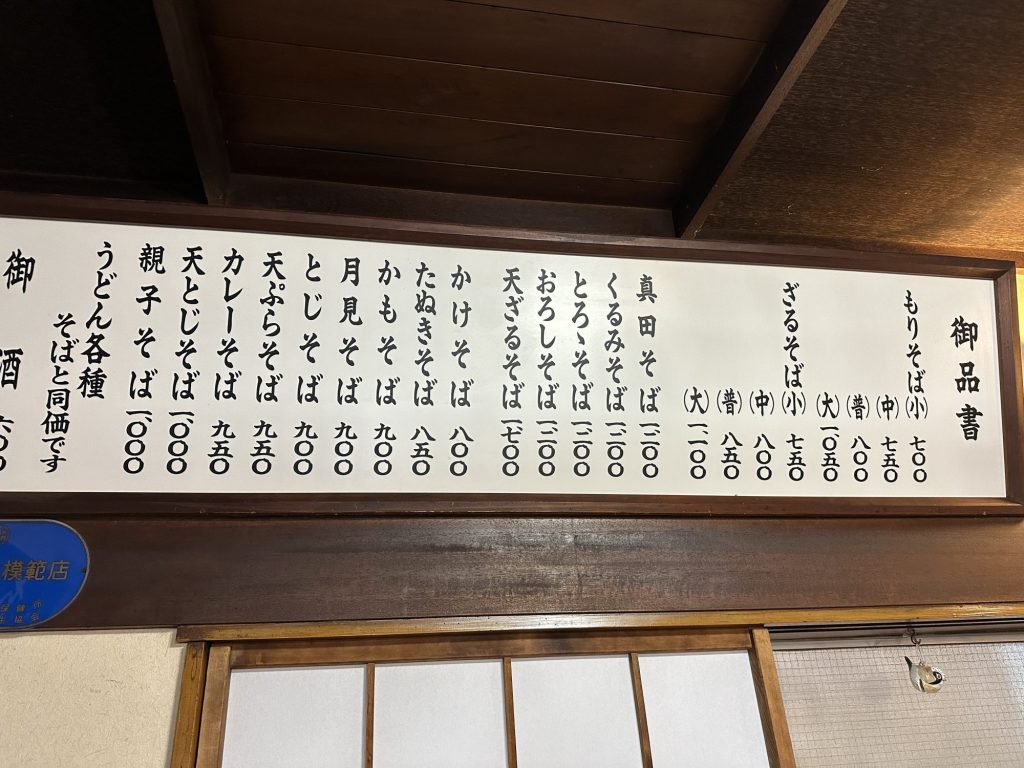 御品書
もりそば(小) 七〇〇
(中) 七五〇
(普) 八〇〇
(大) 一、〇五〇
ざるそば(小) 七五〇
(中) 八〇〇
(普) 八五〇
(大) 一、一〇〇
真田そば 一、二〇〇
くるみそば 一、二〇〇
とろゝそば 一、二〇〇
おろしそば 一、二〇〇
天ざるそば 一、七〇〇
かけそば 八〇〇
たぬきそば 八五〇
かもそば 九〇〇
月見そば 九〇〇
とじそば 九〇〇
天ぷらそば 九五〇
カレーそば 九五〇
天とじそば 一、〇〇〇
親子そば 一、〇〇〇
うどん各種
そばと同価です
御酒 六〇〇
模範店